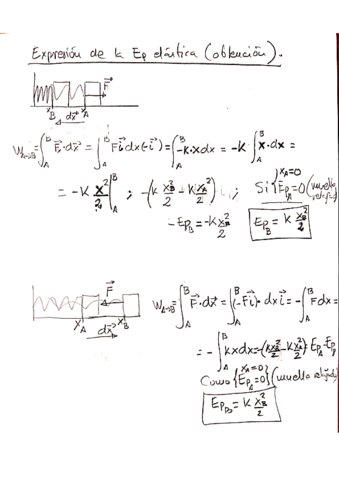 Expresión de la Ep elástica (obtención).
F⃗
x_B x_A
dx⃗
W_{A→B} = ∫_A^B F⃗·dx⃗ = ∫_A^B F i⃗ dx(-i⃗) = ∫_A^B -K·x dx = -K ∫_A^B x·dx =
= -K x²/2 |_A^B ; -(K x_B²/2 - K x_A²/2) ; Si { x_A=0 Ep_A=0 (muelle
-Ep_B = -K x_B²/2 Ep_B = K x_B²/2
F⃗
x_A x_B
dx⃗
W_{A→B} = ∫_A^B F⃗·dx⃗ = ∫_A^B (-F i⃗)·dx i⃗ = -∫_A^B F dx =
= -∫_A^B Kx dx = -(K x_B²/2 - K x_A²/2) = Ep_A - Ep_B
Como { x_A=0 Ep_A=0 } (muelle
Ep_B = K x_B²/2